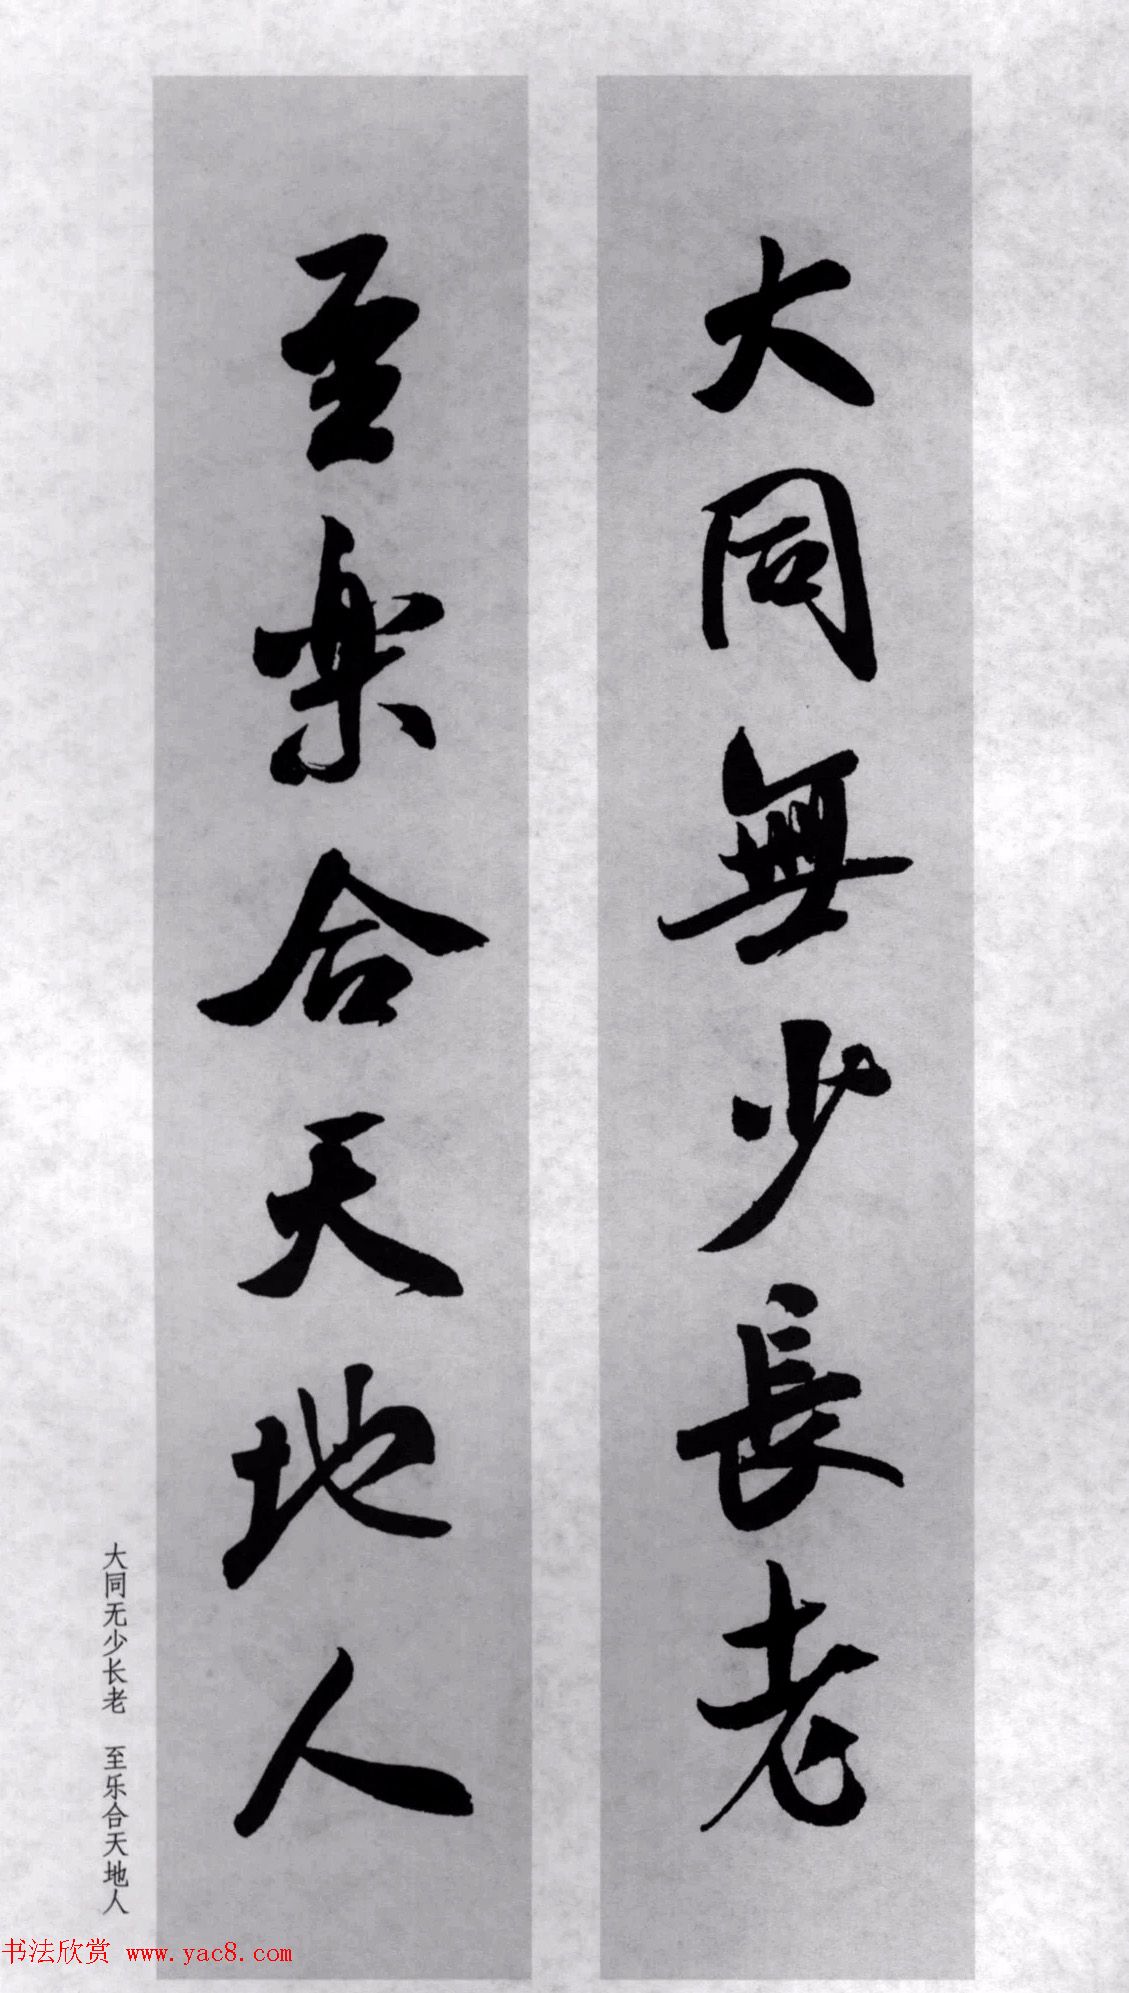 大同無少長老
至楽合天地人
大同无少长老 至乐合天地人
书法欣赏 www.yac8.com